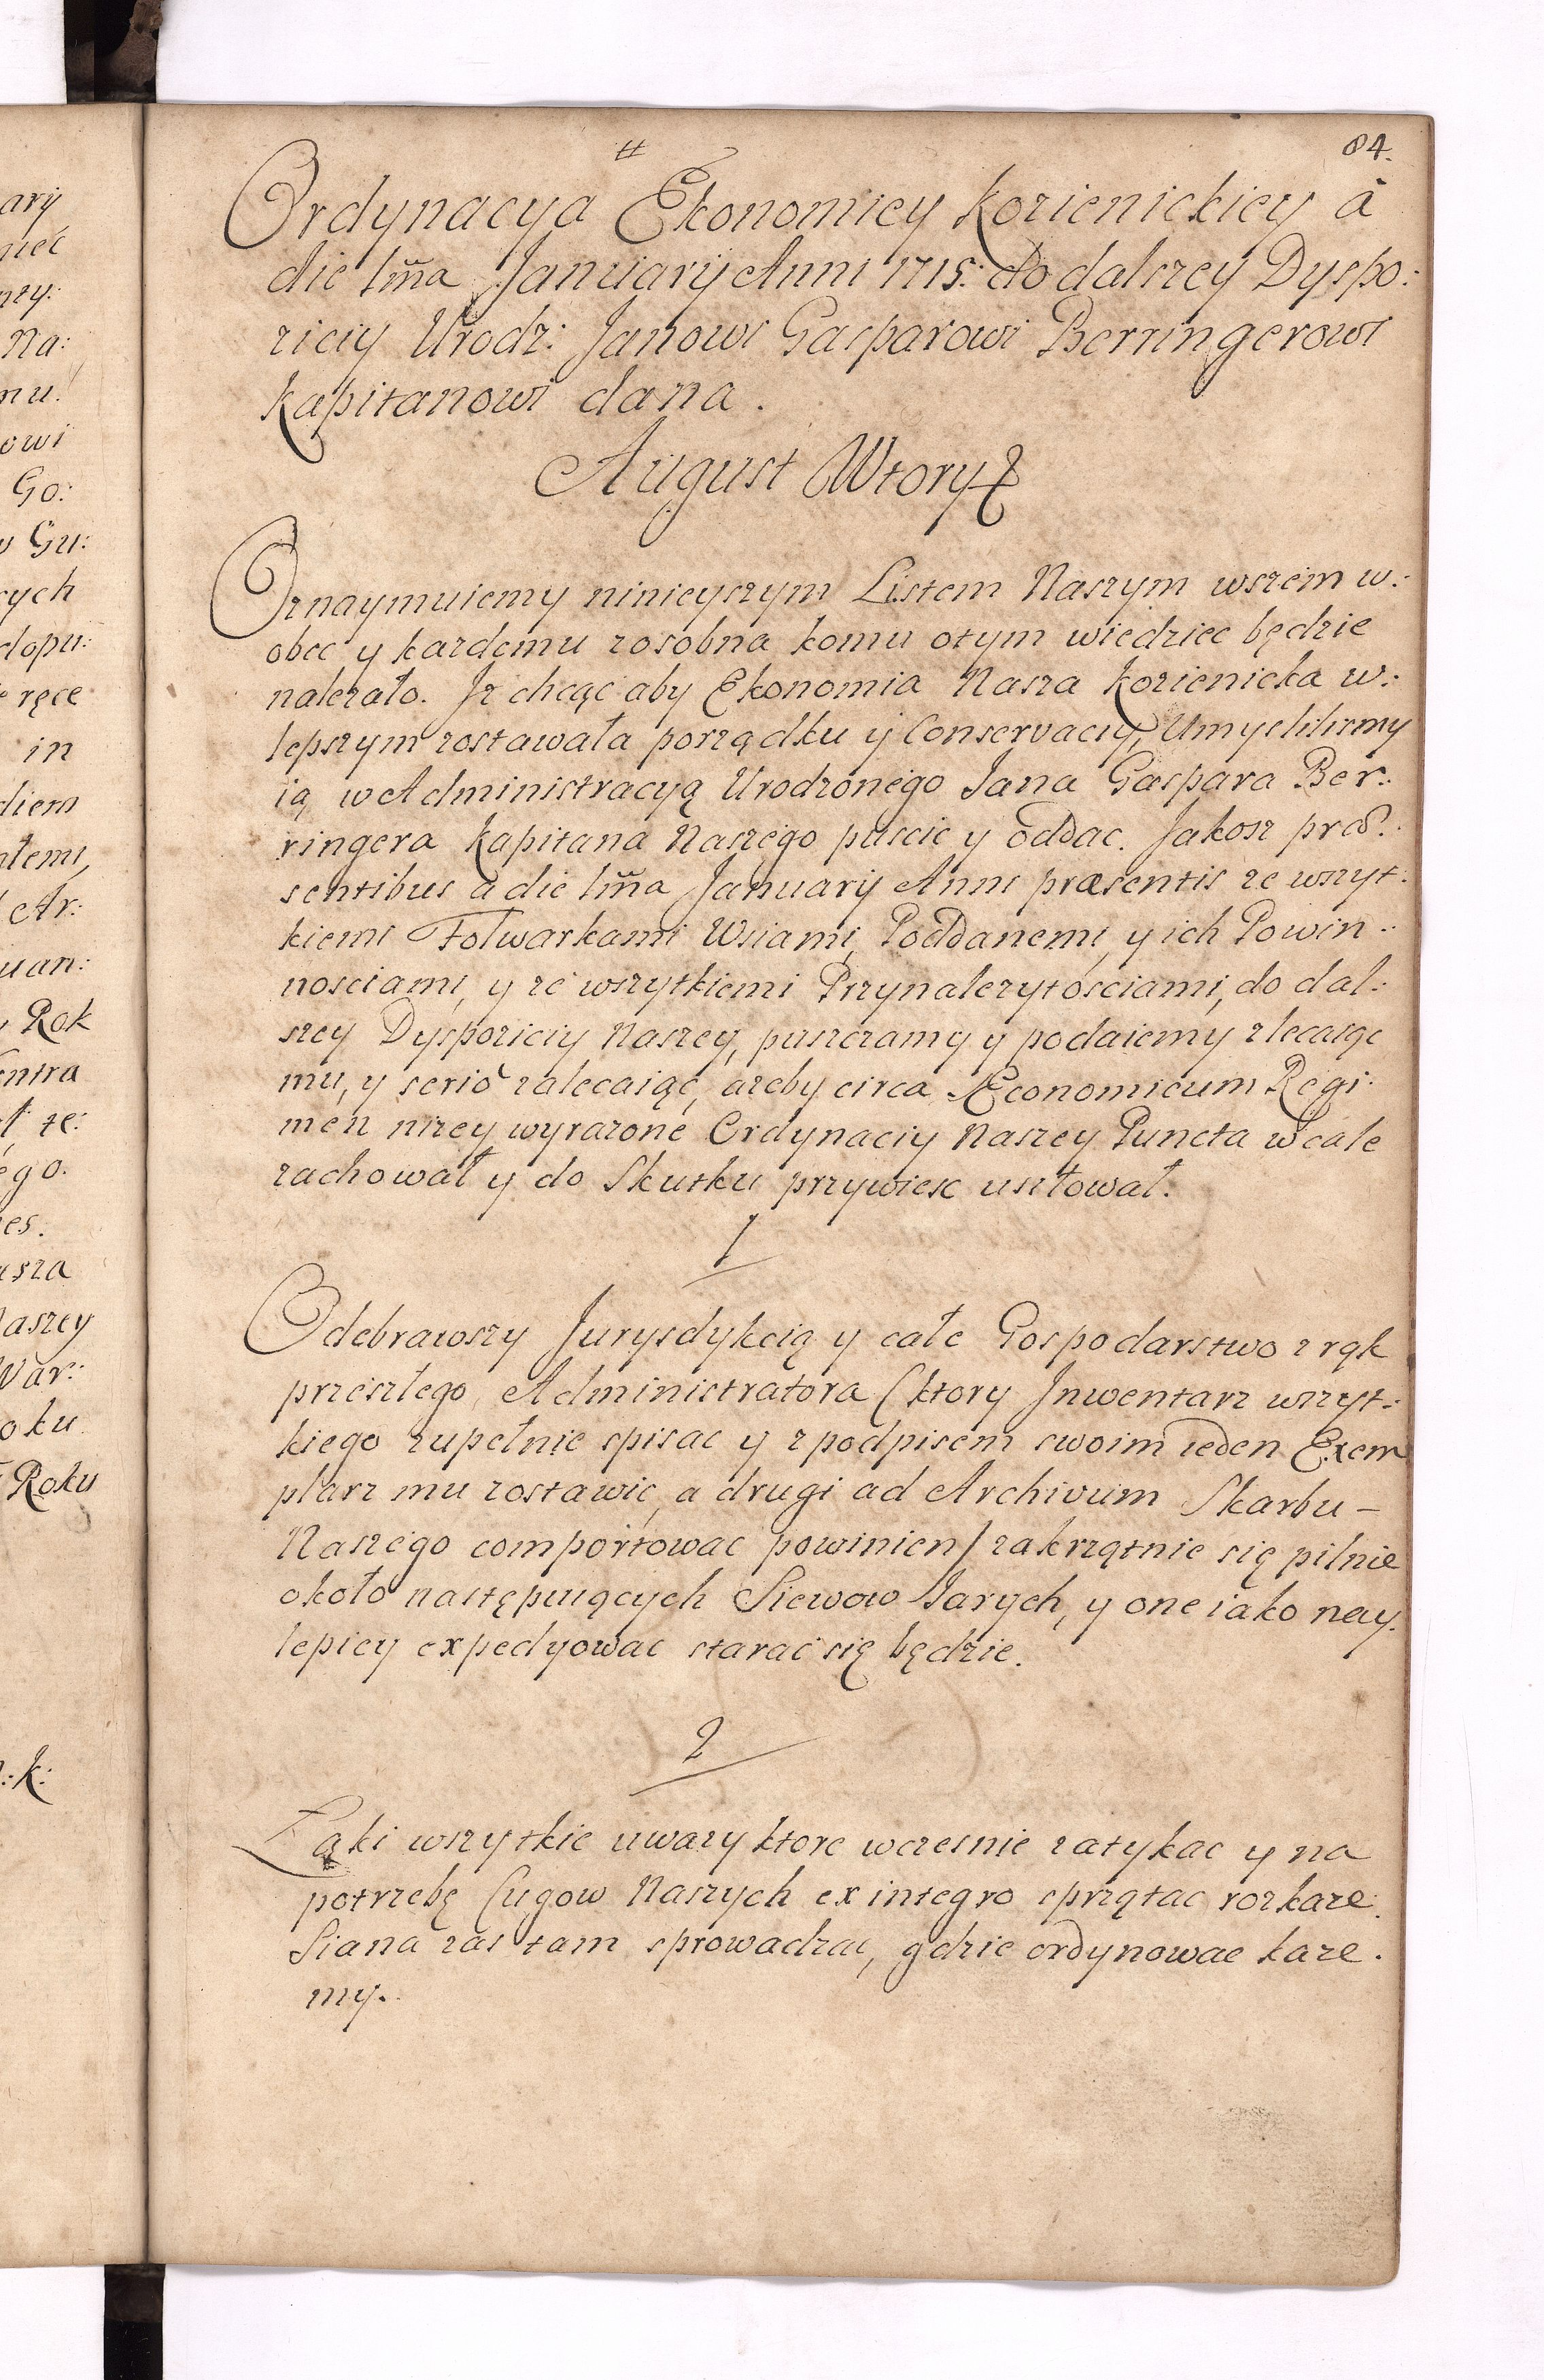 84.
Ordynacya Ekonomiey Kozienickiey à
die 1ma Januarij Anni 1715: do dalszey Dyspo:
ziciy Urodz: Janowi Gasparowi Berringerowi
Kapitanowi dana.
August Wtory
Oznaymuiemy ninieyszym Listem Naszym wszem w:
obec y kazdemu zosobna komu otym wiedziec będzie
nalezało. Iz chcąc aby Ekonomia Nasza Kozienicka w:
lepszym zostawała porządku y Conservaciy, Umyslilismy
ią w Administracyą Urodzonego Jana Gaspara Ber:
ringera Kapitana Naszego puscic y oddac. Jakosz præ:
sentibus a die 1ma Januarij Anni præsentis ze wszyt:
kiemi Folwarkami Wsiami, Poddanemi, y ich Powin:
nosciami, y ze wszytkiemi Przynalezytosciami, do dal:
szey Dyspoziciy Naszey, puszczamy y podaiemy zlecaiąc
mu, y serio zalecaiąc, azeby circa Æconomicum Regi:
men nizey wyrazone Ordynaciy Naszey Puncta w cale
zachował y do Skutku przywiesc usiłował.
1
Odebrawszy Jurysdykcią y całe Gospodarstwo z rąk
przeszłego Administratora (ktory Inwentarz wszyt:
kiego zupełnie spisac y z podpisem swoim ieden Exem
plarz mu zostawic, a drugi ad Archivum Skarbu –
Naszego comportowac powinien/ zakrzątnie się pilnie
około następuiących Siewow Jarych, y one iako nay.
lepiey expedyowac starac się będzie.
2
Łąki wszytkie uwazy ktore wczesnie zatykac y na
potrzebę Cugow Naszych ex integro sprzątac rozkaze.
Siana zas tam sprowadzac, gdzie ordynowac kaze.
my.